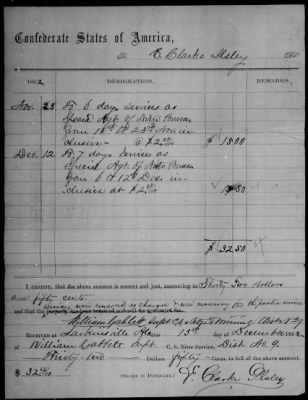 Confederate States of America,
To E. Clarke Ilsley
1862
DESIGNATION.
REMARKS.
Nov. 23 To 6 days services as
Special Agt. of Nitre Bureau
from 18th to 23d Nov in
clusive - @ $2 50/100 $15 00
Dec. 12 To 7 days services as
Special Agt. of Nitre Bureau
from 6 to 12th Dec. in
clusive at $2 50/100 17 50
$ 32 50
I CERTIFY, that the above account is correct and just, amounting to Thirty Two dollars
and fifty cents
services were rendered as charged & were necessary for the public service
and that the
William Gabbett Supt C.S. Nitre & Mining Dist No 9
RECEIVED at Larkinsville Ala 13th day of December 1862
of William Gabbett Supt. C. S. Nitre Service, Dist. No 9.
Thirty two Dollars fifty Cents, in full of the above account.
$ 32 50/100
[SIGNED IN DUPLICATE.]
E. Clarke Ilsley